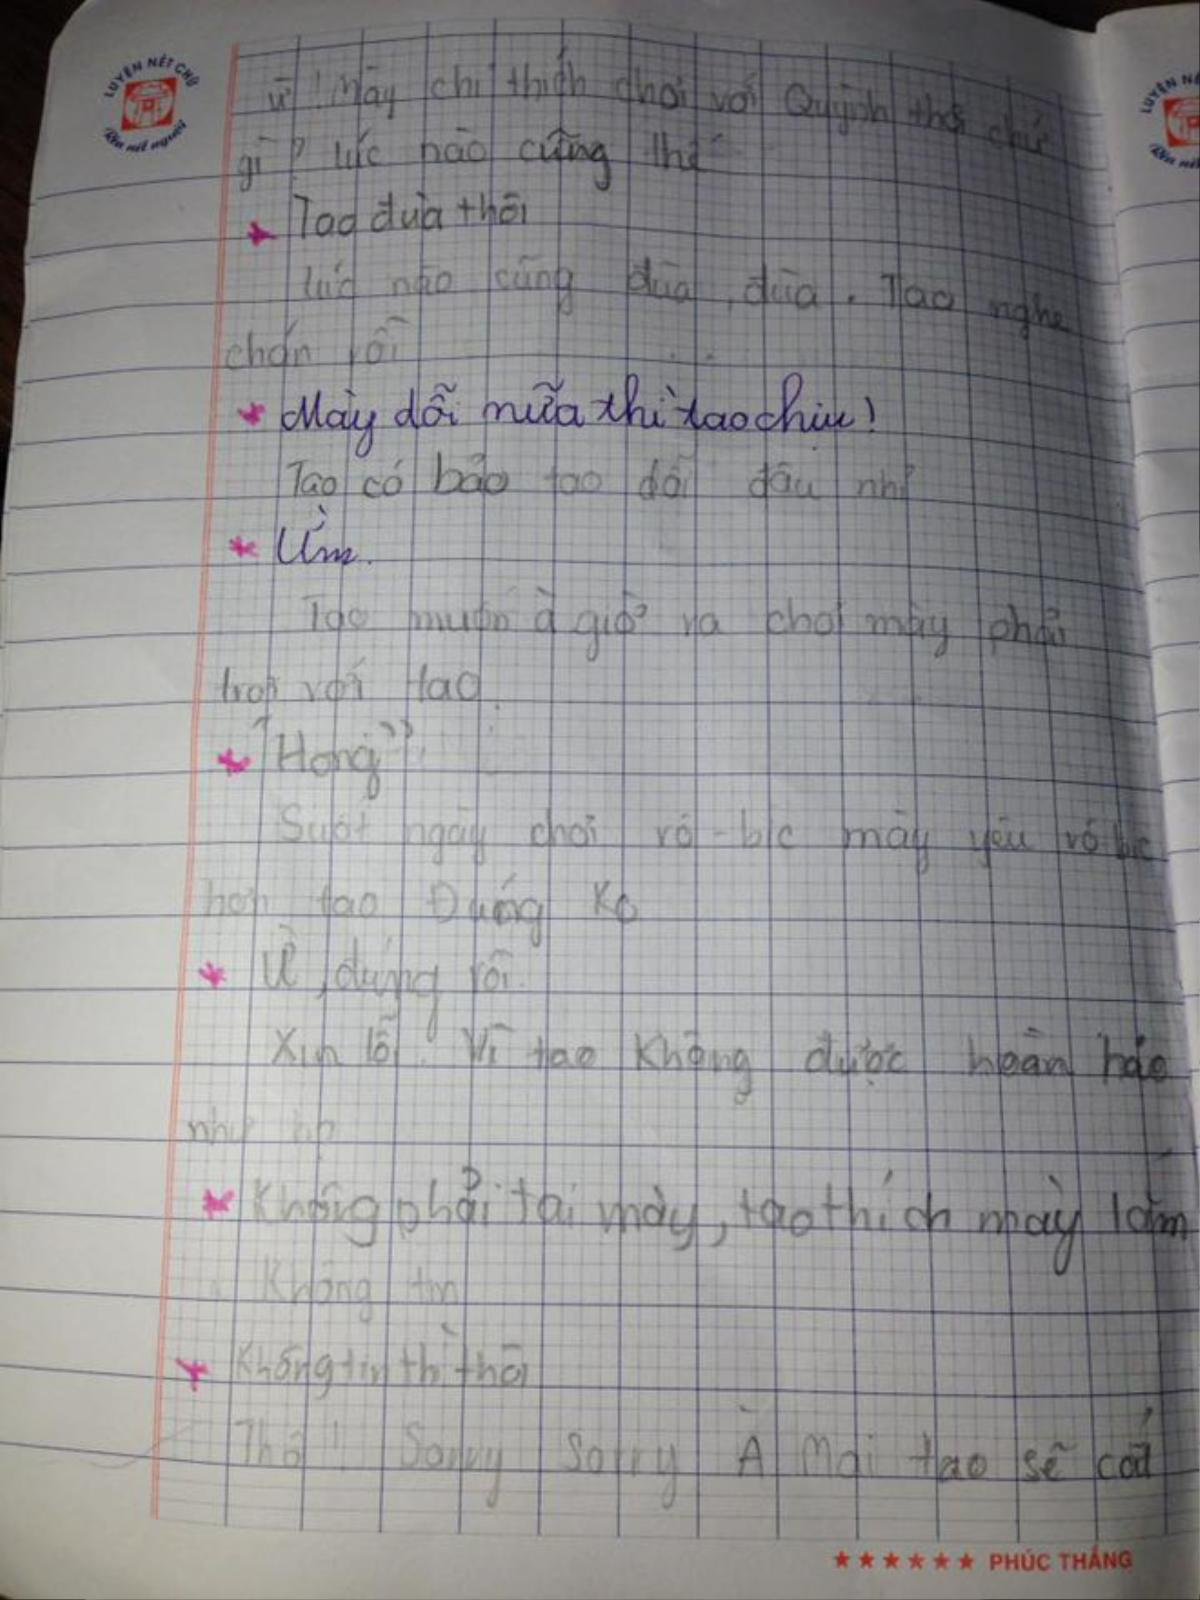 LUYỆN NÉT CHỮ
Rèn nết người
LUYỆN NÉ
Rèn nết
Ừ ! Mày chỉ thích chơi với Quỳnh thôi chứ
gì ? lúc nào cũng thế
Tao đùa thôi
lúc nào cũng đùa, đùa. Tao nghe
chán rồi
Mày dỗi nữa thì tao chịu!
Tao có bảo tao dỗi đâu nhỉ
Ừm.
Tao muốn à giờ ra chơi mày phải
trơi với tao.
"Hong"
Suốt ngày chơi rô-bíc mày yêu rô-bíc
hơn tao Đúng Ko
Ừ, đúng rồi.
Xin lỗi. Vì tao Không được hoàn hảo
như
Không phải tại mày, tao thích mày lắm
Không tin
Không tin thì thôi
Thôi ! Sorry Sorry À Mai tao sẽ
PHÚC THẮNG